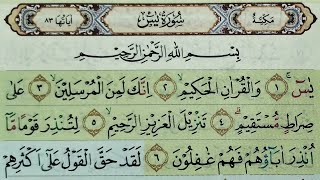 مكية سورة يس آياتها ٨٣
بِسْمِ اللَّهِ الرَّحْمَٰنِ الرَّحِيمِ
يسٓ ۝١ وَالْقُرْآنِ الْحَكِيمِ ۝٢ إِنَّكَ لَمِنَ الْمُرْسَلِينَ ۝٣ عَلَىٰ
صِرَاطٍ مُسْتَقِيمٍ ۝٤ تَنْزِيلَ الْعَزِيزِ الرَّحِيمِ ۝٥ لِتُنْذِرَ قَوْمًا مَا
أُنْذِرَ آبَاؤُهُمْ فَهُمْ غَافِلُونَ ۝٦ لَقَدْ حَقَّ الْقَوْلُ عَلَىٰ أَكْثَرِهِمْ